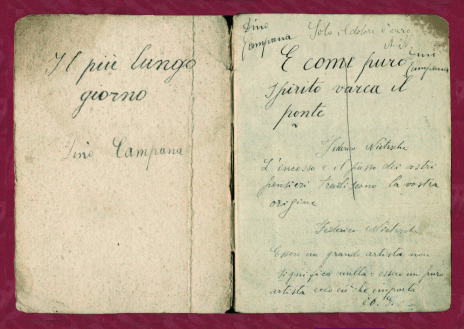 Il più lungo
giorno
Dino Campana
Dino
Campana
Solo il dolore è vero
E come puro
Campana
spirito varca il
ponte
Federico Nietzsche
L'incesso e il passo dei vostri
pensieri tradiscono la vostra
origine
Federico Nietzsche
Essere un grande artista non
significa nulla: essere un puro
artista ecco ciò che importa